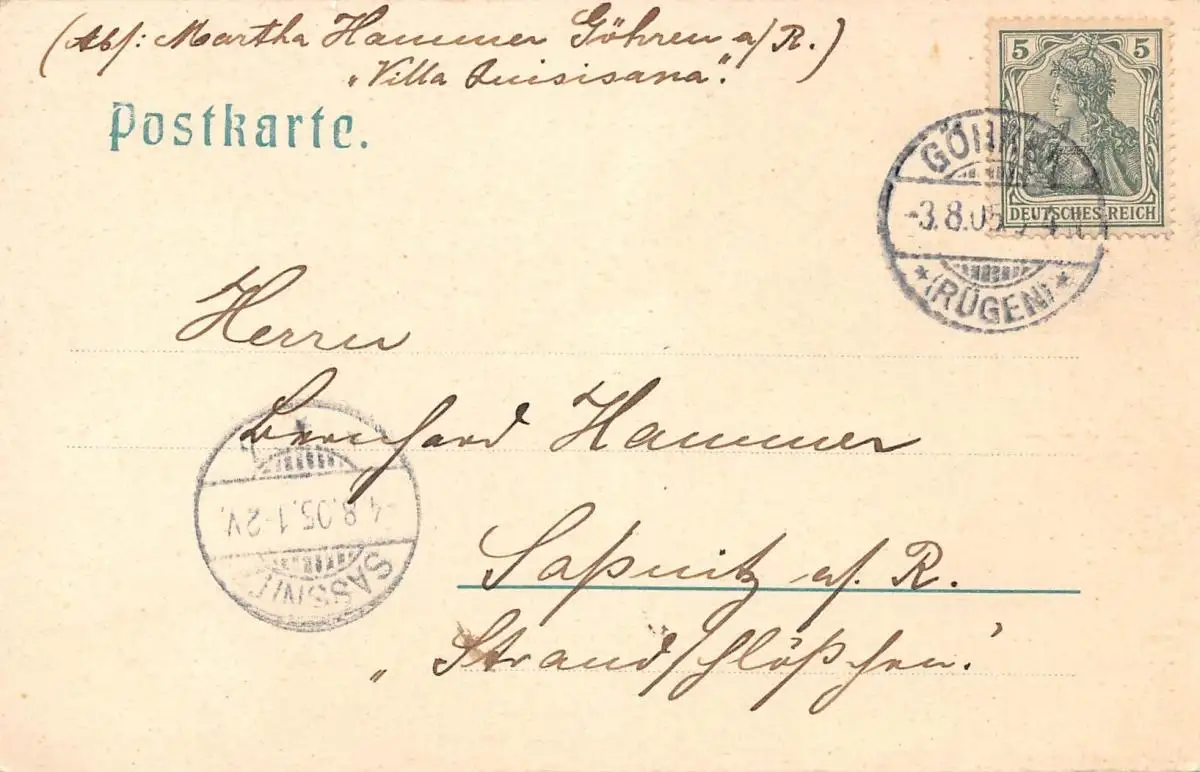 (Abs: Martha Hammer Göhren a/R.)
„Villa Quisisana".
Postkarte.
5 5
DEUTSCHES REICH
GÖHREN
-3.8.05.
*(RÜGEN)*
Herrn
Bernhard Hammer
-4.8.05.1-2V.
SASSNITZ
Saßnitz a/. R.
„Strandschlößchen.'